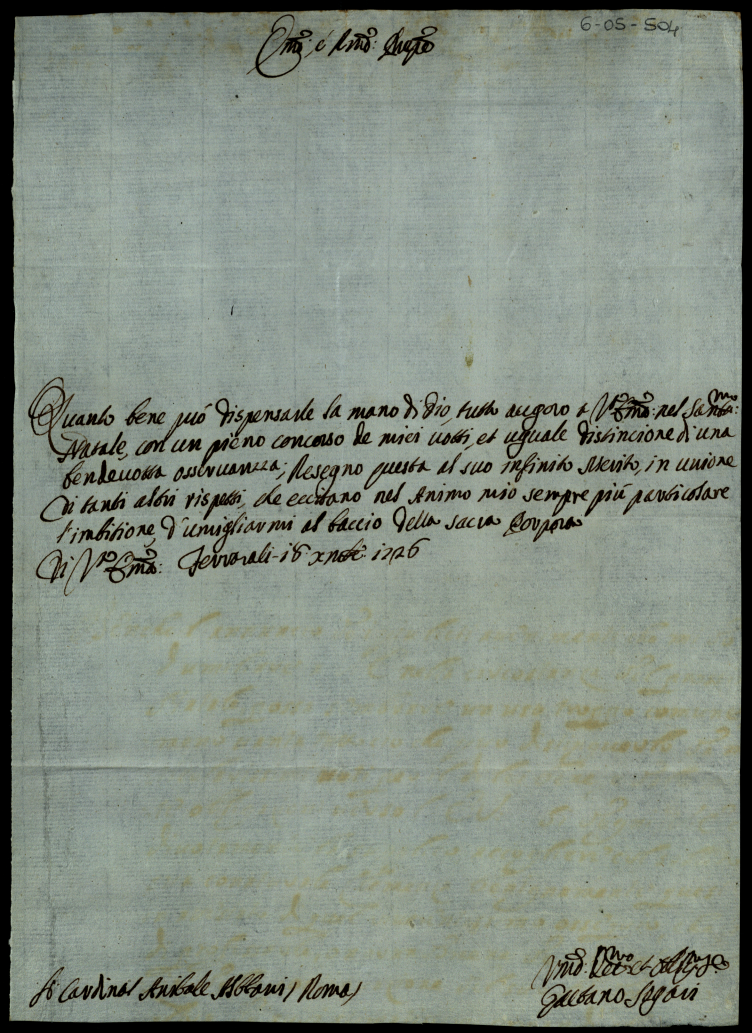 6-05-504
Em̃o: é Rm̃o: Prñpe
Quanto bene può dispensarle la mano di Dio, tutto auguro a V:ra Em̃a: nel Santmo:
Natale, con un pieno concorso de miei votti, et uguale distincione di una
ben devotta osservanza; Resegno questa al suo infinito Merito, in unione
di tanti altri rispetti, che eccitano nel Animo mio sempre più particolare
l'imbitione, d'umigliarmi al baccio della sacra Porpora
Di V:ra Em̃a: Ferrara li 18 Xmbre 1726
Sr: Cardinal Anibale Albani / Roma /
Vmo: Devmo et
Gaetano